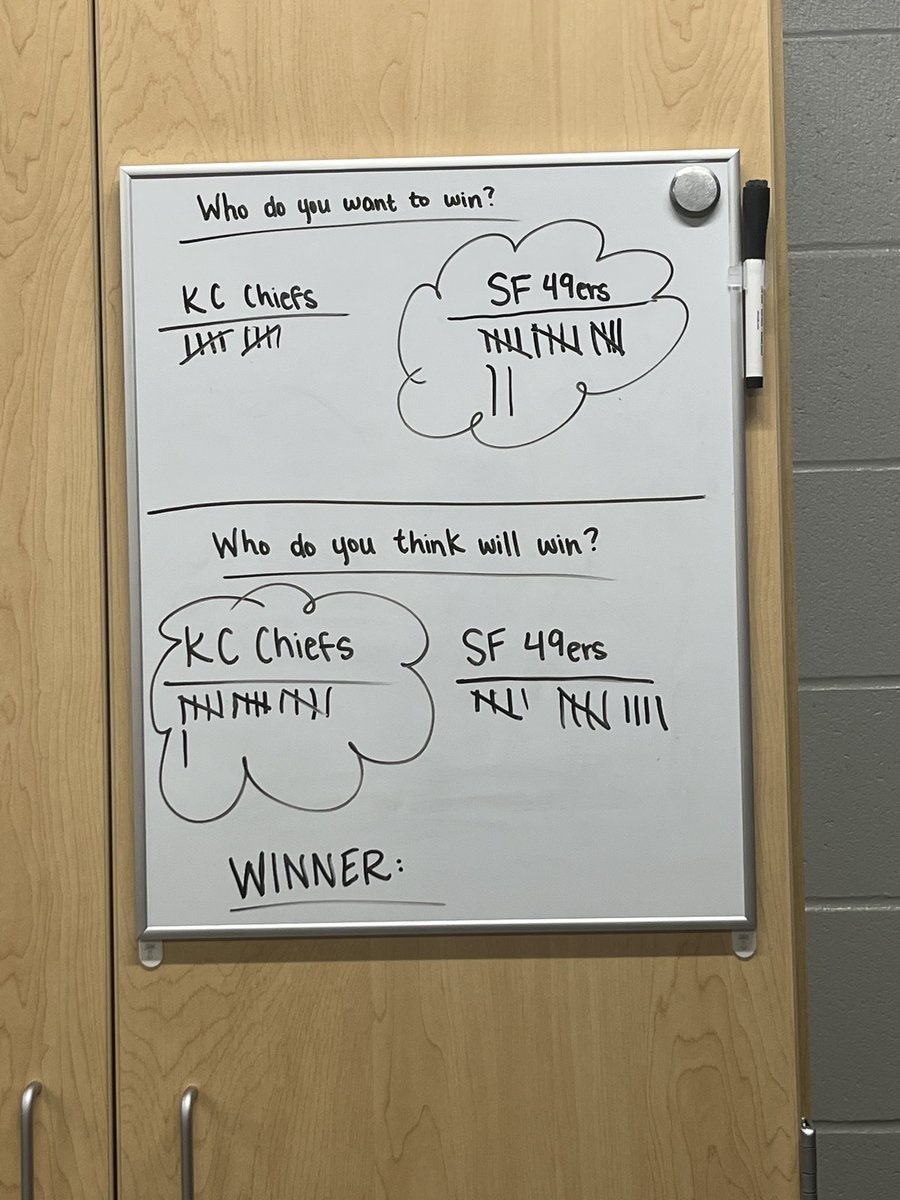 Who do you want to win?
KC Chiefs
SF 49ers
Who do you think will win?
KC Chiefs
SF 49ers
WINNER: